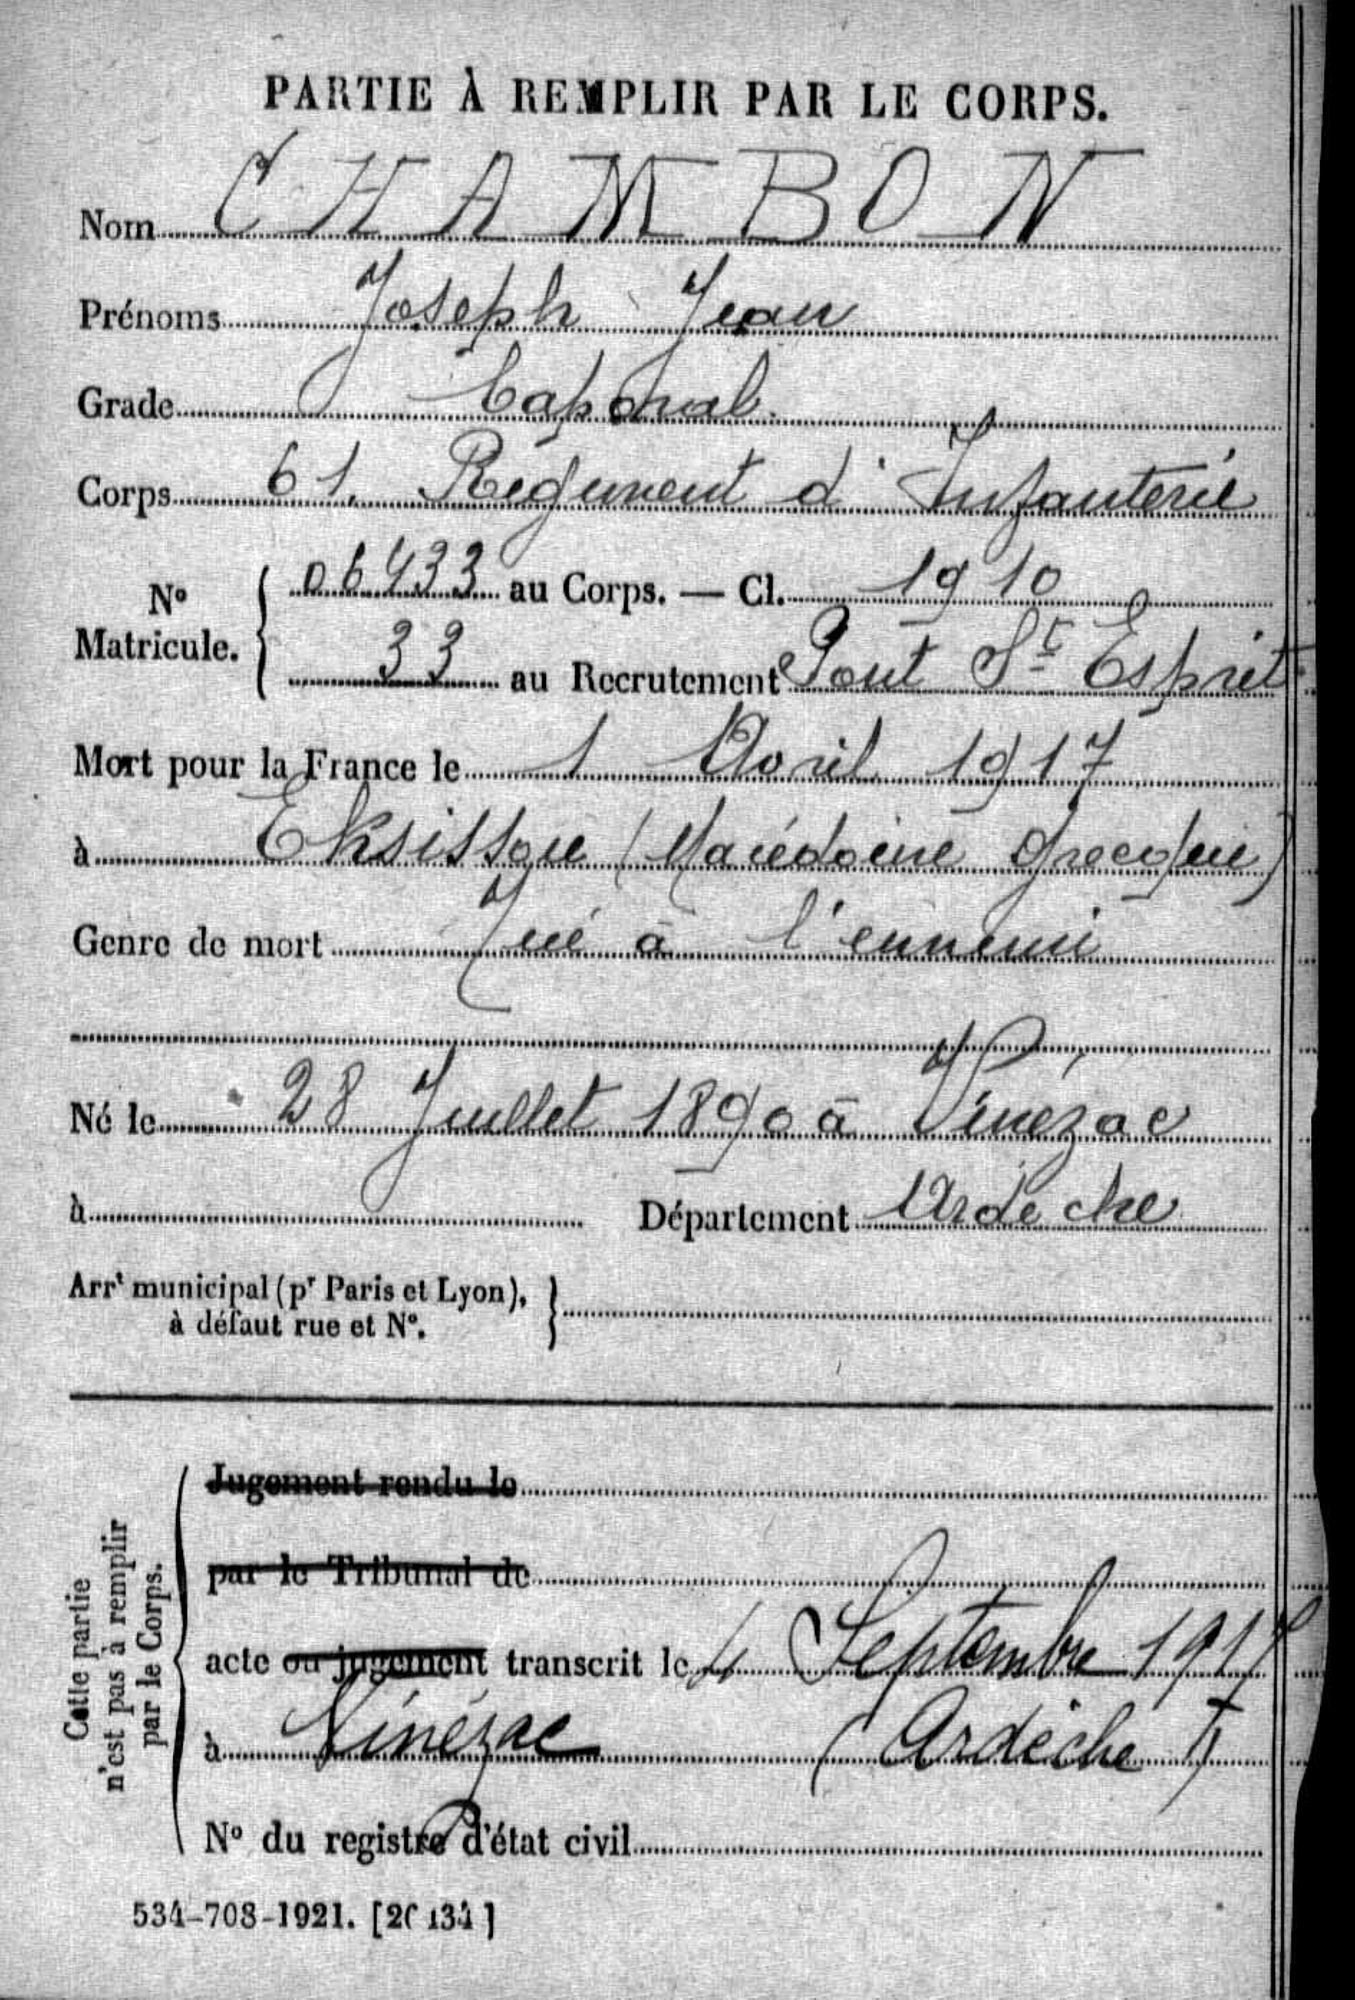 PARTIE À REMPLIR PAR LE CORPS.
Nom CHAMBON
Prénoms Joseph Jean
Grade Caporal
Corps 61. Régiment d'Infanterie
N° Matricule. 06433 au Corps. — Cl. 1910
33 au Recrutement Pont St Esprit
Mort pour la France le 1 Avril 1917
à Eksissou (Macédoine Grecque)
Genre de mort Tué à l'ennemi
Né le 28 Juillet 1890 à Vinézac
à Département Ardèche
Arrt municipal (pr Paris et Lyon),
à défaut rue et N°.
Cette partie
n'est pas à remplir
par le Corps.
Jugement rendu le
par le Tribunal de
acte ou jugement transcrit le 4 Septembre 1917
à Vinézac (Ardèche)
N° du registre d'état civil
534-708-1921. [26434]